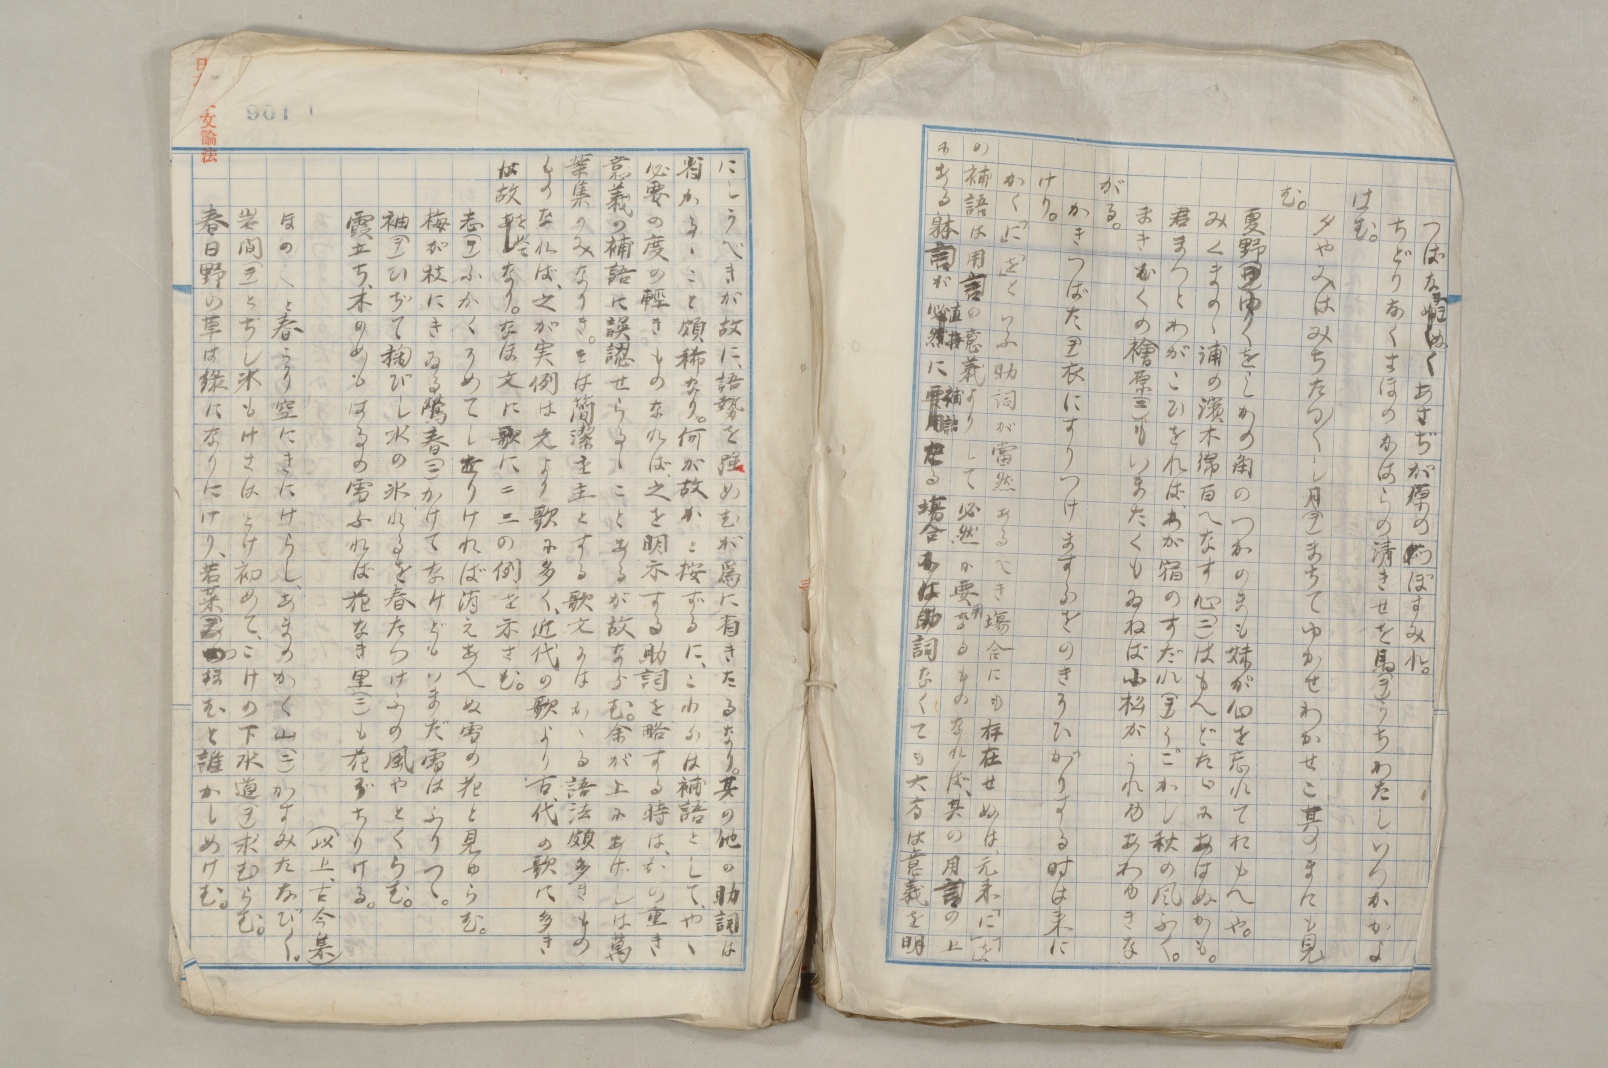 つばなぬく あさぢが原の つぼすみれ。
ちどりなくさほのかはらの清きせを馬(ヲ)うちわたしいつかかよ
はむ。
夕やみはみちたづ〳〵し月(ヲ)まちてゆかせわがせこ其のまにも見
む。
夏野(ヲ)ゆくをしかの角のつかのまも妹が心を忘れてれもへや。
みくまのゝ浦の濱木綿百へなす心(ニ)はもへどたゞにあはぬかも。
君まつとわがこひをればわが宿のすだれ(ヲ)うごかし秋の風ふく。
まきむくの檜原(ニ)もいまだくもゐねば小松がうれゆあわゆきな
がる。
かきつばた(ヲ)衣にすりつけますらをのきそひがりする時は来に
けり。
かく「に」「を」といふ助詞が當然あるべき塲合にも存在せぬは、元来「に」「を」
の補語は用言の意義よりして必然に要用なるものなれば、其の用言の上
にある躰言が直接に補語たる塲合には助詞なくても大方は意義を明
にしうべきが故に、語勢を強めむが爲に有きたるなり。其の他の助詞は
省かるゝこと頗稀なり。何が故かと按ずるに、これらは補語として、やゝ
必要の度の輕きものなれば、之を明示する助詞を略する時は、かの重き
意義の補語に誤認せらるゝことあるが故ならむ。余が上にあげしは萬
葉集のみなりき。そは簡潔を主とする歌文にはかゝる語法頗多きもの
ものなれば、之が実例は文より歌に多く、近代の歌より古代の歌に多き
は故なり。なほ文に歌に二三の例を示さむ。
志(ヲ)ふかくそめてしをりければ消えあへぬ雪の花と見ゆらむ。
梅が枝にきゐる鶯春(ニ)かけてなけどもいまだ雪はふりつゝ。
袖(ヲ)ひぢて掬びし水の氷れるを春たつけふの風やとくらむ。
霞立ち、木のめもはるの雪ふれば花なき里(ニ)も花ぞちりける。
（以上、古今集）
ほの〴〵と春こそ空にきにけらしあまのかぐ山(ニ)かすみたなびく。
岩間(ヲ)とぢし氷もけさはとけ初めて、こけの下水道(ヲ)求むらむ。
春日野の草は緑になりにけり、若菜(ヲ)つまむと誰かしめけむ。
文論法
961